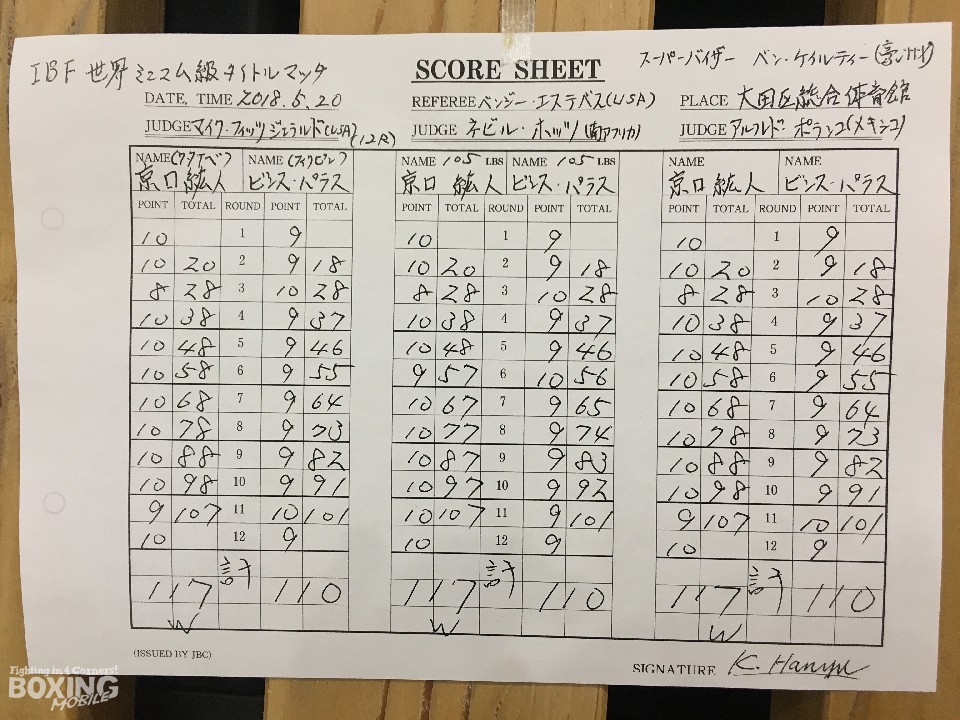 IBF 世界 ミニマム級タイトルマッチ
SCORE SHEET
スーパーバイザー ベン・ケイルティー
DATE, TIME 2018.5.20
REFEREE ベンジー・エステベス(USA)
PLACE 大田区総合体育館
JUDGE マイク・フィッツジェラルド(USA) (12R)
JUDGE ネビル・ホッツ (南アフリカ)
JUDGE アルフレド・ポランコ(メキシコ)
NAME (ワタナベ) NAME (フィリピン) NAME 105 LBS NAME 105 LBS NAME NAME
京口紘人 ビンス・パラス 京口 紘人 ビンス・パラス 京口紘人 ビンス・パラス
POINT TOTAL ROUND POINT TOTAL POINT TOTAL ROUND POINT TOTAL POINT TOTAL ROUND POINT TOTAL
10 1 9 10 1 9 10 1 9
10 20 2 9 18 10 20 2 9 18 10 20 2 9 18
8 28 3 10 28 8 28 3 10 28 8 28 3 10 28
10 38 4 9 37 10 38 4 9 37 10 38 4 9 37
10 48 5 9 46 10 48 5 9 46 10 48 5 9 46
10 58 6 9 55 9 57 6 10 56 10 58 6 9 55
10 68 7 9 64 10 67 7 9 65 10 68 7 9 64
10 78 8 9 73 10 77 8 9 74 10 78 8 9 73
10 88 9 9 82 10 87 9 9 83 10 88 9 9 82
10 98 10 9 91 10 97 10 9 92 10 98 10 9 91
9 107 11 10 101 10 107 11 9 101 9 107 11 10 101
10 12 9 10 12 9 10 12 9
117 計 110 117 計 110 117 計 110
W W W
(ISSUED BY JBC)
SIGNATURE K.
Fighting in 4 Corners!
BOXING
MOBILE